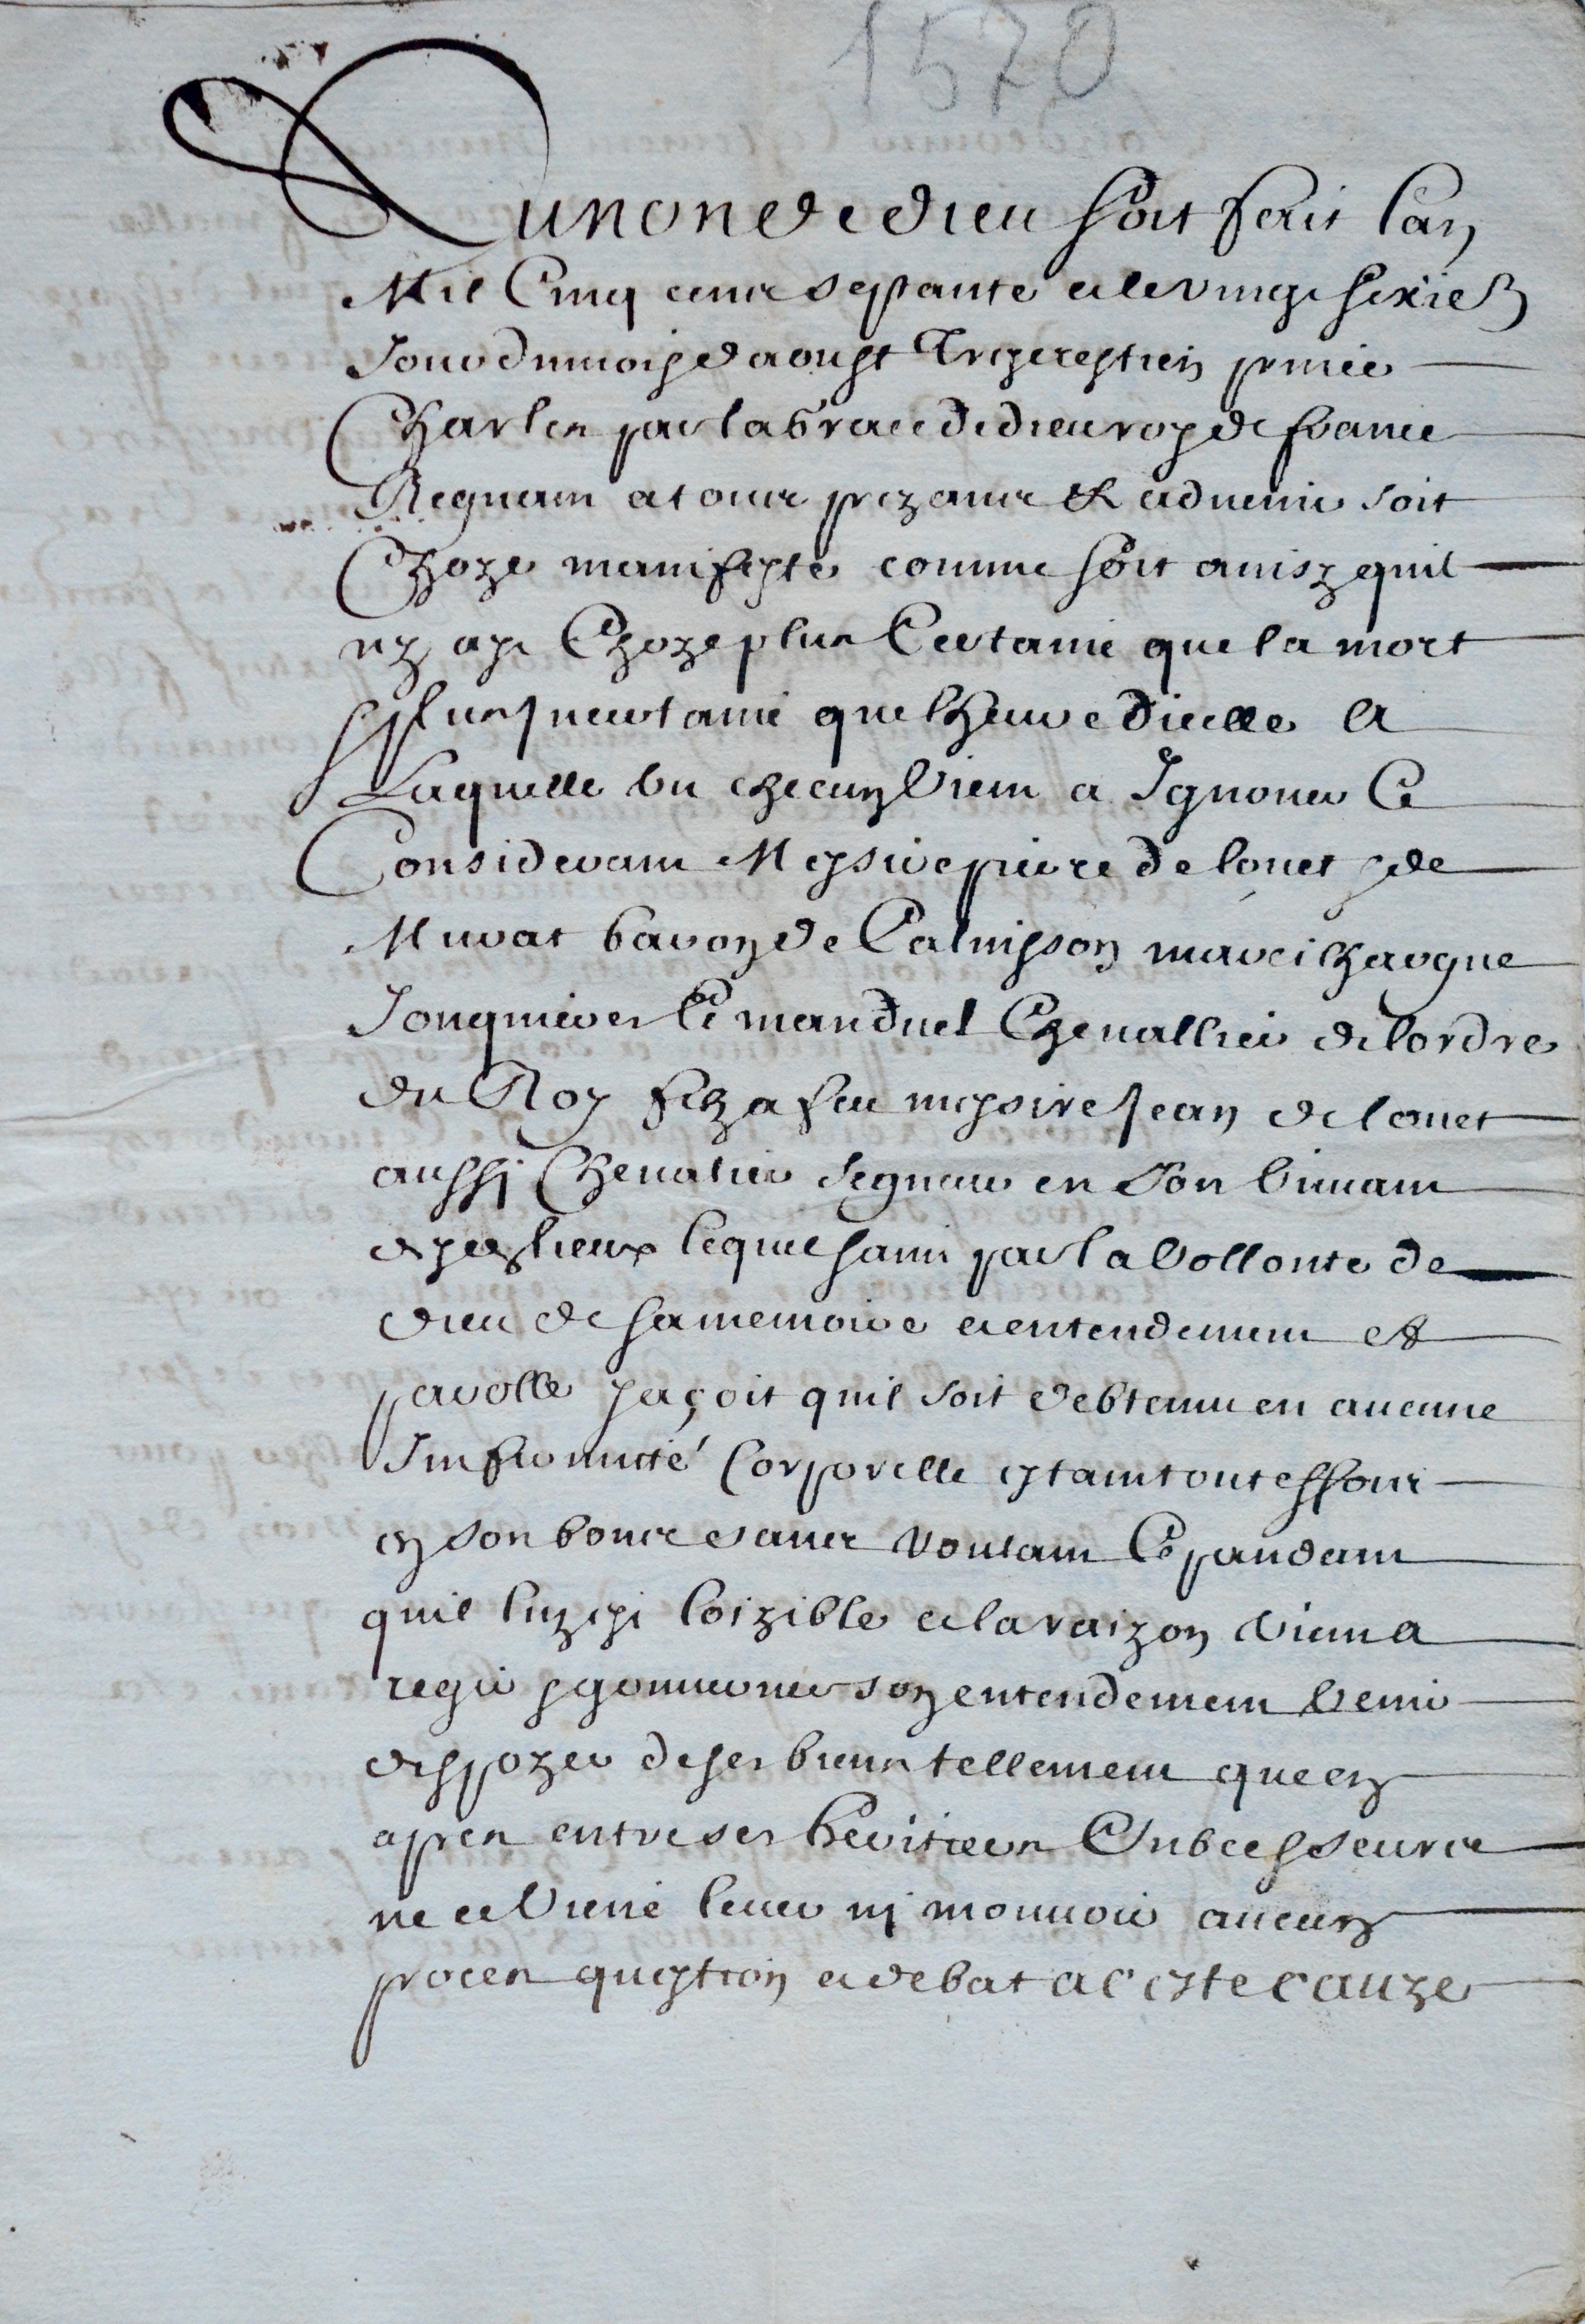 1570
Au nom de dieu soit faict lan
Mil Cinq cens septante et le vingt sixies
Jour du mois daoust treze restien prince
Charles par la Grace de dieu roy de france
Regnant a tous prezans & advenir soit
Choze manifeste comme soit ainsy quil
ny aye Choze plus Certaine que la mort
ny plus jncertaine que lheure dicelle a
Laquelle un checun vient a Ignorer Ce
Considerant Messire pierre de louet de
Murat baron de Calvisson marcilhargue
Jonquieres et manduel Chevallier de lordre
du Roy filz a feu messire Jean de louet
aussi Chevalier segneur en son vivant
desdes lieux lequel sain par la vollonte de
dieu de sa memoire et entendement et
parolle jaçoit quil soit debtenu en aucune
Infirmitté Corporelle estant toutesfois
en son bon sens voulant Cepandant
quil luy est loizible et la raizon vient a
regir et gouverner son entendement venir
dispozer de ses biens tellement que en
apres entre ses heritiers Subcesseurs
ne adviene lever ni mouvoir aucung
proces question et debat a ceste cauze